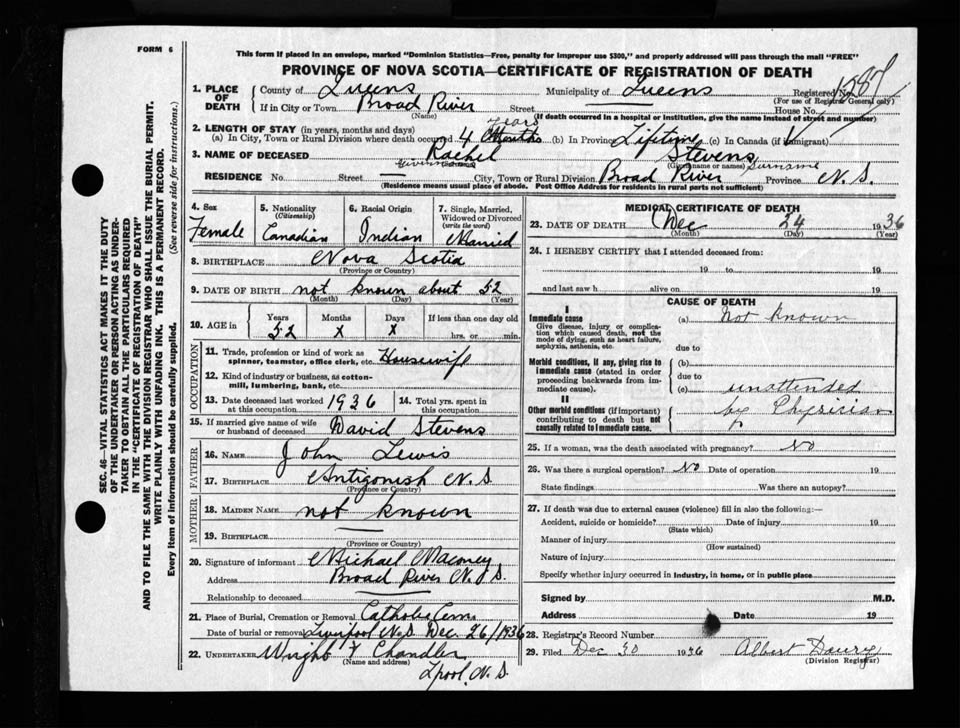 FORM 6
This form if placed in an envelope, marked "Dominion Statistics—Free, penalty for improper use $300," and properly addressed will pass through the mail "FREE"
PROVINCE OF NOVA SCOTIA—CERTIFICATE OF REGISTRATION OF DEATH
1. PLACE OF DEATH
County of Queens Municipality of Queens Registered No. 1287
(For use of Registrar General only)
If in City or Town Broad River Street House No.
(Name) (If death occurred in a hospital or institution, give the name instead of street and number)
2. LENGTH OF STAY (in years, months and days)
(a) In City, Town or Rural Division where death occurred 4 years Months (b) In Province Lifetime (c) In Canada (if immigrant)
3. NAME OF DECEASED Rachel Stevens
(Given name or names) Surname
RESIDENCE No. Street — City, Town or Rural Division Broad River Province N.S.
(Residence means usual place of abode. Post Office Address for residents in rural parts not sufficient)
4. Sex Female
5. Nationality (Citizenship) Canadian
6. Racial Origin Indian
7. Single, Married, Widowed or Divorced (write the word) Married
8. BIRTHPLACE Nova Scotia
(Province or Country)
9. DATE OF BIRTH not known about 52
(Month) (Day) (Year)
10. AGE in Years 52 Months x Days x If less than one day old hrs. or min.
OCCUPATION
11. Trade, profession or kind of work as spinner, teamster, office clerk, etc. Housewife
12. Kind of industry or business, as cotton-mill, lumbering, bank, etc.
13. Date deceased last worked at this occupation 1936
14. Total yrs. spent in this occupation
15. If married give name of wife or husband of deceased David Stevens
FATHER
16. NAME John Lewis
17. BIRTHPLACE Antigonish N.S.
(Province or Country)
MOTHER
18. MAIDEN NAME not known
19. BIRTHPLACE —
(Province or Country)
20. Signature of informant Michael
Address Broad River N.S.
Relationship to deceased —
21. Place of Burial, Cremation or Removal Catholic Cem
Date of burial or removal Liverpool N.S. Dec. 26/1936
22. UNDERTAKER Wright & Chandler
(Name and address)
Lpool, N.S.
MEDICAL CERTIFICATE OF DEATH
23. DATE OF DEATH Dec 24 1936
(Month) (Day) (Year)
24. I HEREBY CERTIFY that I attended deceased from:
19 to 19
and last saw h alive on 19
CAUSE OF DEATH
I
Immediate cause
Give disease, injury or complication which caused death, not the mode of dying, such as heart failure, asphyxia, asthenia, etc.
(a) Not known
due to
Morbid conditions, if any, giving rise to immediate cause (stated in order proceeding backwards from immediate cause).
(b)
due to
(c) unattended
II
Other morbid conditions (if important) contributing to death but not causally related to immediate cause.
by Physician
25. If a woman, was the death associated with pregnancy? No
26. Was there a surgical operation? No Date of operation 19
State findings Was there an autopsy?
27. If death was due to external causes (violence) fill in also the following:—
Accident, suicide or homicide? Date of injury 19
(State which)
Manner of injury
(How sustained)
Nature of injury
Specify whether injury occurred in industry, in home, or in public place
Signed by M.D.
Address Date 19
28. Registrar's Record Number
29. Filed Dec 30 1936 Albert
(Division Registrar)
SEC. 46—VITAL STATISTICS ACT MAKES IT THE DUTY
OF THE UNDERTAKER OR PERSON ACTING AS UNDER-
TAKER TO OBTAIN ALL THE PARTICULARS REQUIRED
IN THE "CERTIFICATE OF REGISTRATION OF DEATH"
AND TO FILE THE SAME WITH THE DIVISION REGISTRAR WHO SHALL ISSUE THE BURIAL PERMIT.
WRITE PLAINLY WITH UNFADING INK. THIS IS A PERMANENT RECORD.
Every item of information should be carefully supplied. (See reverse side for instructions.)